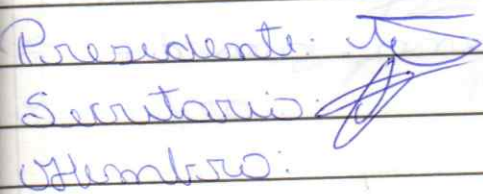 Presidente:
Secretario:
Membro: